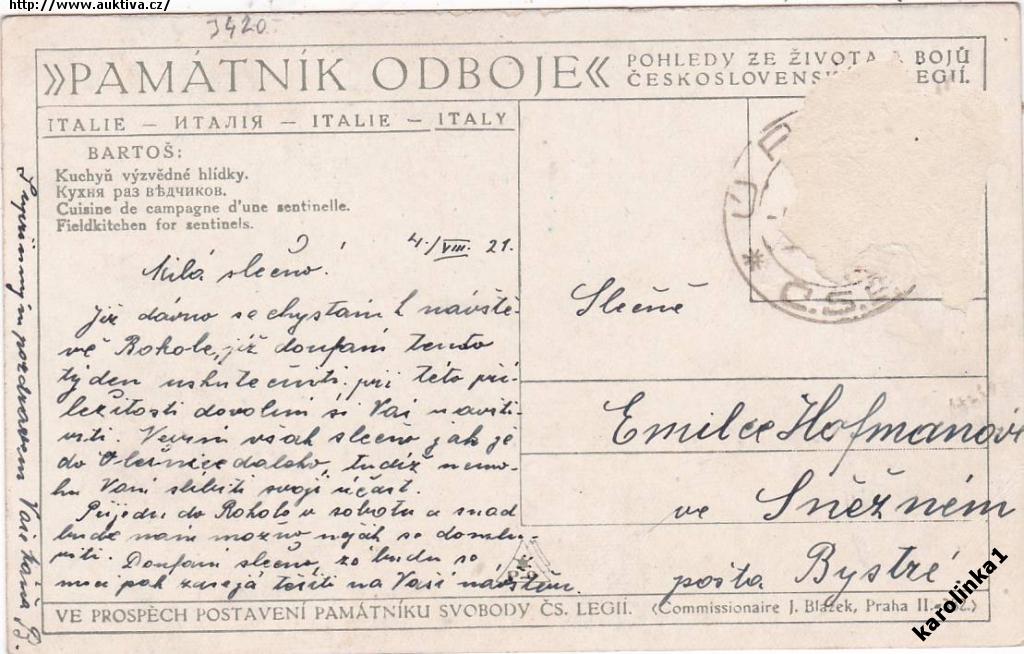 http://www.auktiva.cz/
3420
»PAMÁTNÍK ODBOJE« POHLEDY ZE ŽIVOTA A BOJŮ
ČESKOSLOVENSK LEGIÍ.
ITALIE — ИТАЛІЯ — ITALIE — ITALY
BARTOŠ:
Kuchyň výzvědné hlídky.
Кухня раз вѣдчиков.
Cuisine de campagne d'une sentinelle.
Fieldkitchen for sentinels.
4./VIII. 21.
Milá slečno!
Již dávno se chystám k návště-
vě Rohole, již doufám tento
týden uskutečniti. při této pří-
ležitosti dovolím si Vás navští-
viti. Nevím však slečno jak je
do Olešnice daleko, tudíž nemo-
hu Vám slíbiti svoji účast.
Přijedu do Rohole v sobotu a snad
bude nám možno nějak se domlu-
viti. Doufám slečno, že budu se
moci pak zase já těšiti na Vaši návštěvu.
S upřímným pozdravem Vaše Káňa B.
Slečně
Emilce Hofmanové
ve Sněžném
pošta Bystré
* Č.S.
VE PROSPĚCH POSTAVENÍ PAMÁTNÍKU SVOBODY ČS. LEGIÍ. (Commissionaire J. Blažek, Praha II.
karolinka1